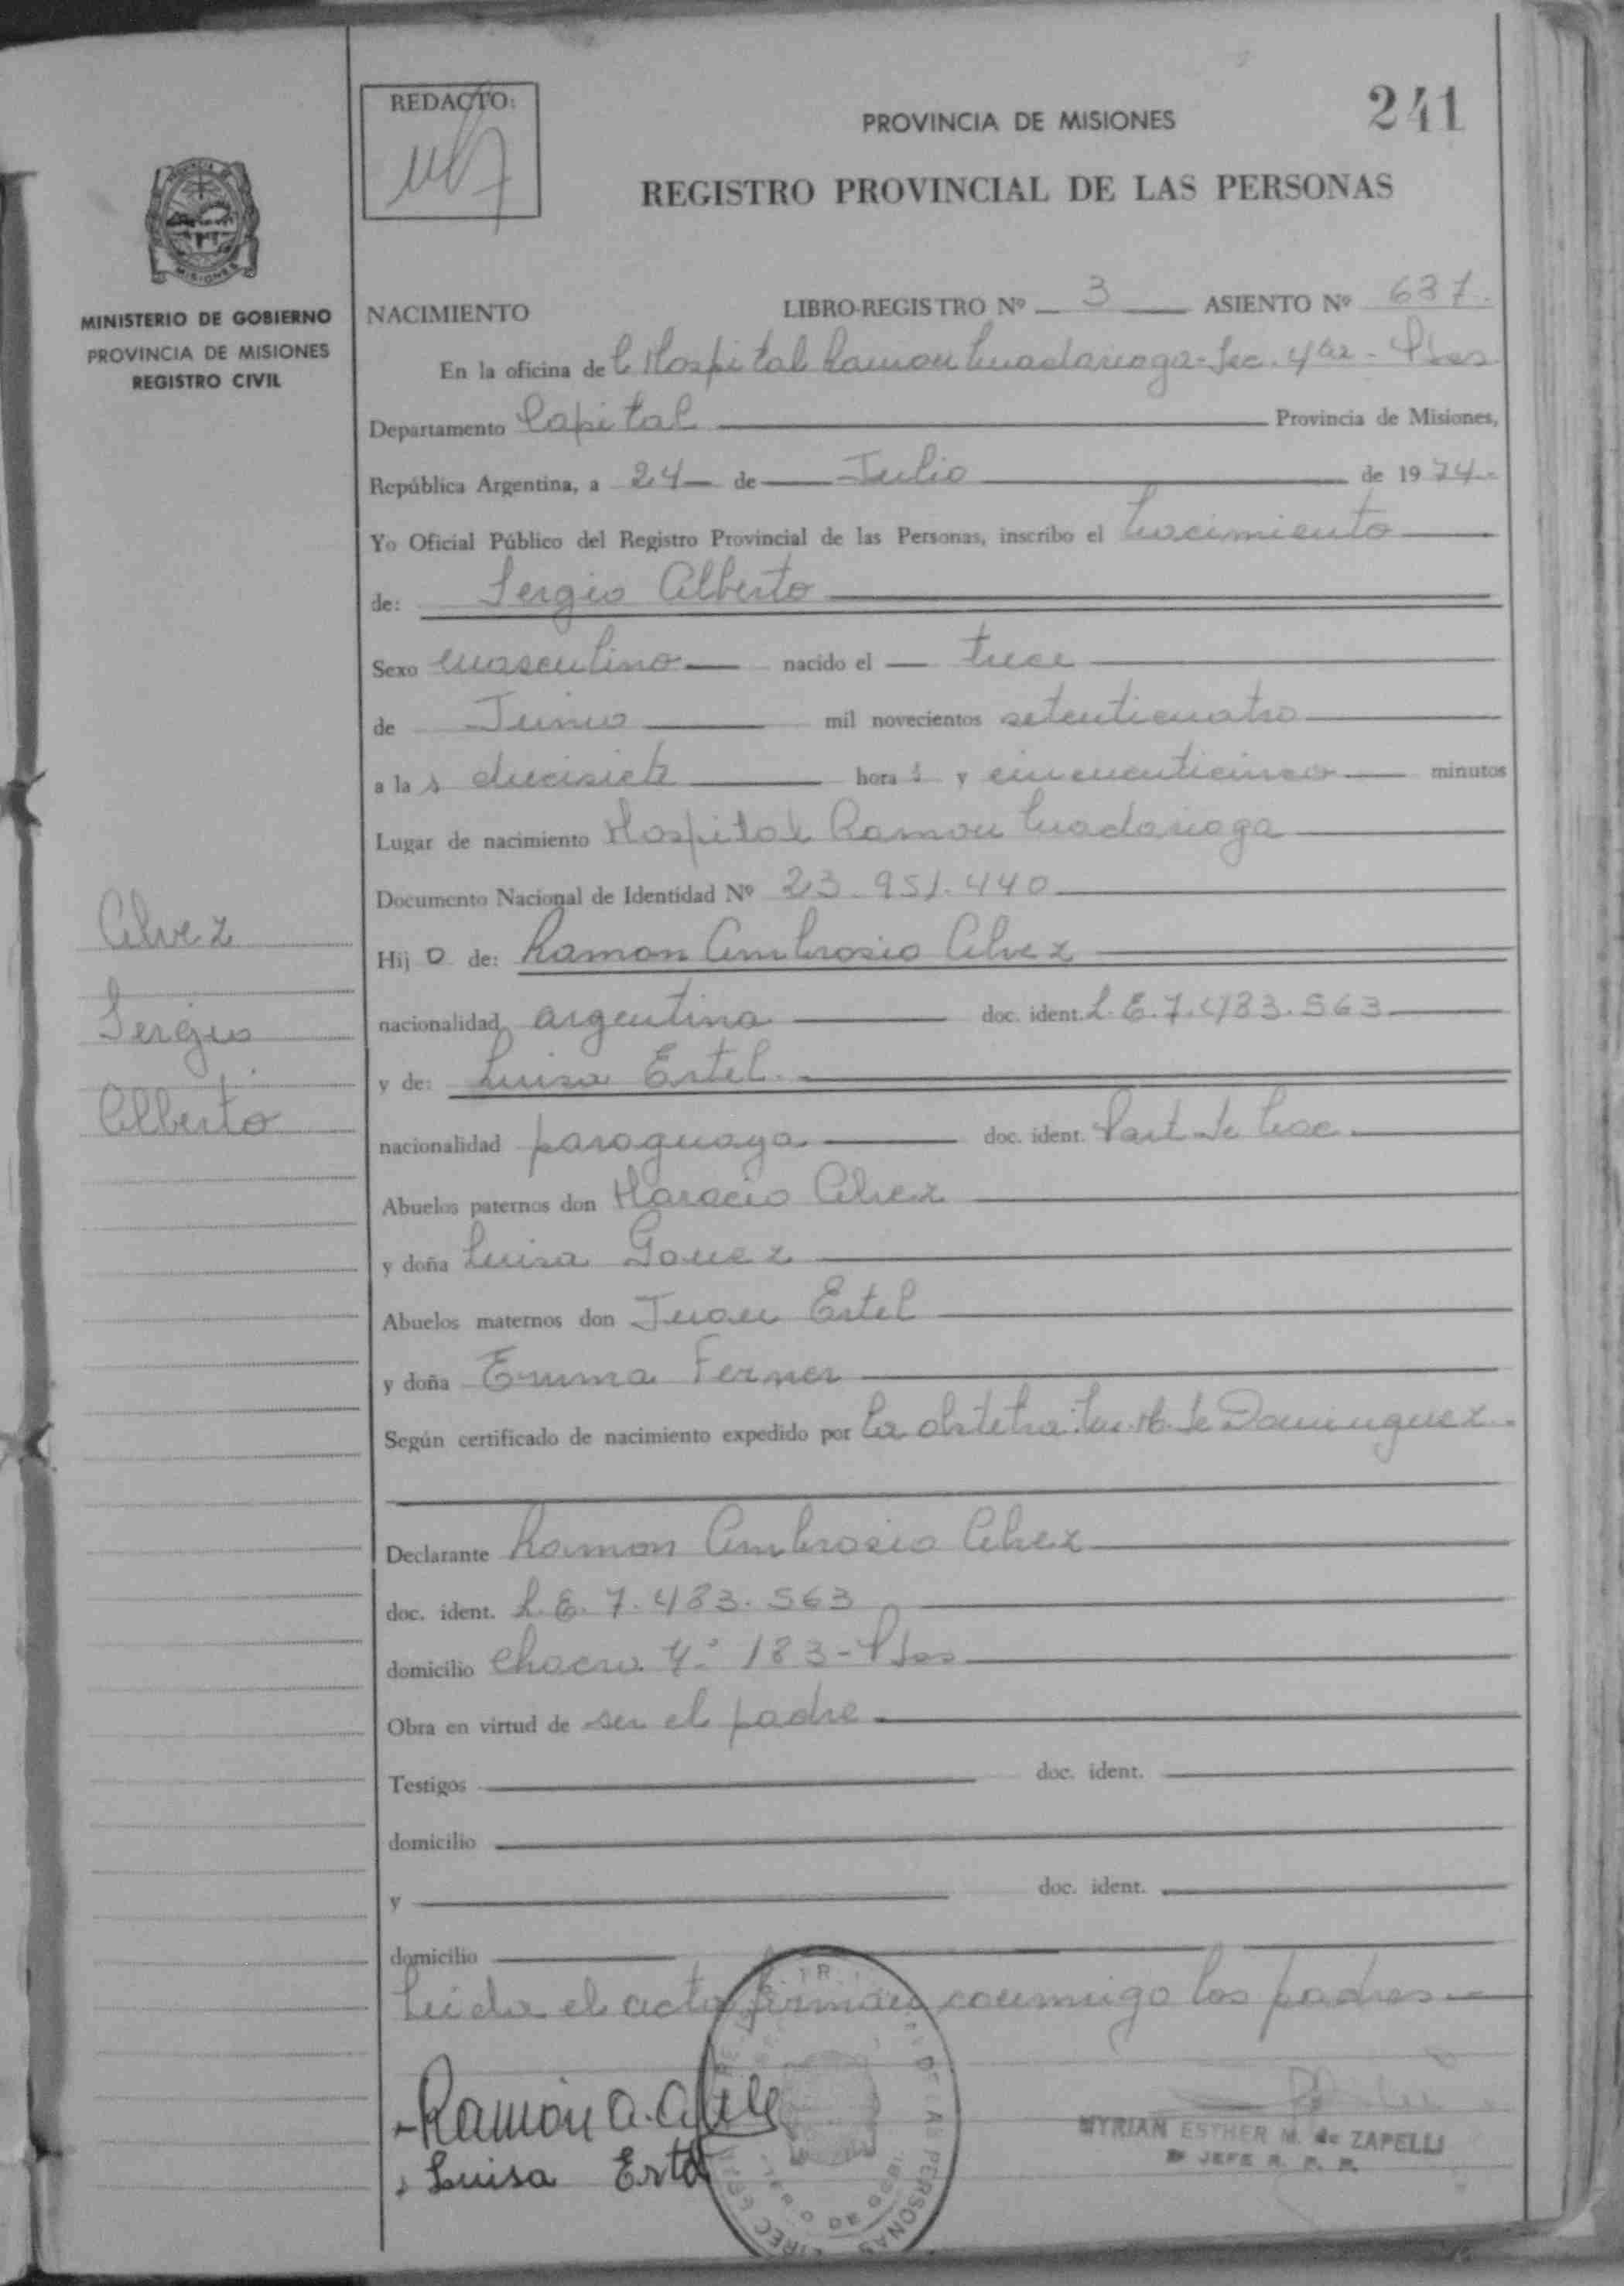 241
REDACTO:
PROVINCIA DE MISIONES
REGISTRO PROVINCIAL DE LAS PERSONAS
MISIONES
MINISTERIO DE GOBIERNO
PROVINCIA DE MISIONES
REGISTRO CIVIL
NACIMIENTO LIBRO-REGISTRO Nº 3 ASIENTO Nº 637.
En la oficina de l Hospital Ramon Madariaga - Sec. 4ta - Pdas
Departamento Capital Provincia de Misiones,
República Argentina, a 24 de Julio de 1974
Yo Oficial Público del Registro Provincial de las Personas, inscribo el nacimiento
de: Sergio Alberto
Sexo masculino nacido el trece
de Junio mil novecientos setenticuatro
a la s diecisiete hora s y cincuenticinco minutos
Lugar de nacimiento Hospital Ramon Madariaga
Documento Nacional de Identidad Nº 23.951.440
Alvez
Sergio
Alberto
Hij o de: Ramon Ambrosio Alvez
nacionalidad argentina doc. ident. L.E. 7.483.563
y de: Luisa Estel
nacionalidad paraguaya doc. ident. Part de Nac.
Abuelos paternos don Horacio Alvez
y doña Luisa Gomez
Abuelos maternos don Juan Estel
y doña Emma Ferner
Según certificado de nacimiento expedido por la obstetra: de Dominguez.
Declarante Ramon Ambrosio Alvez
doc. ident. L.E. 7.483.563
domicilio Chacra Nº 183 - Pdas
Obra en virtud de ser el padre
Testigos doc. ident.
domicilio
y doc. ident.
domicilio
Leida el acta firman conmigo los padres
Ramon A. Alvez
Luisa Estel
DE LAS PERSONAS
MYRIAN ESTHER M. de ZAPELLI
JEFE R. P. P.